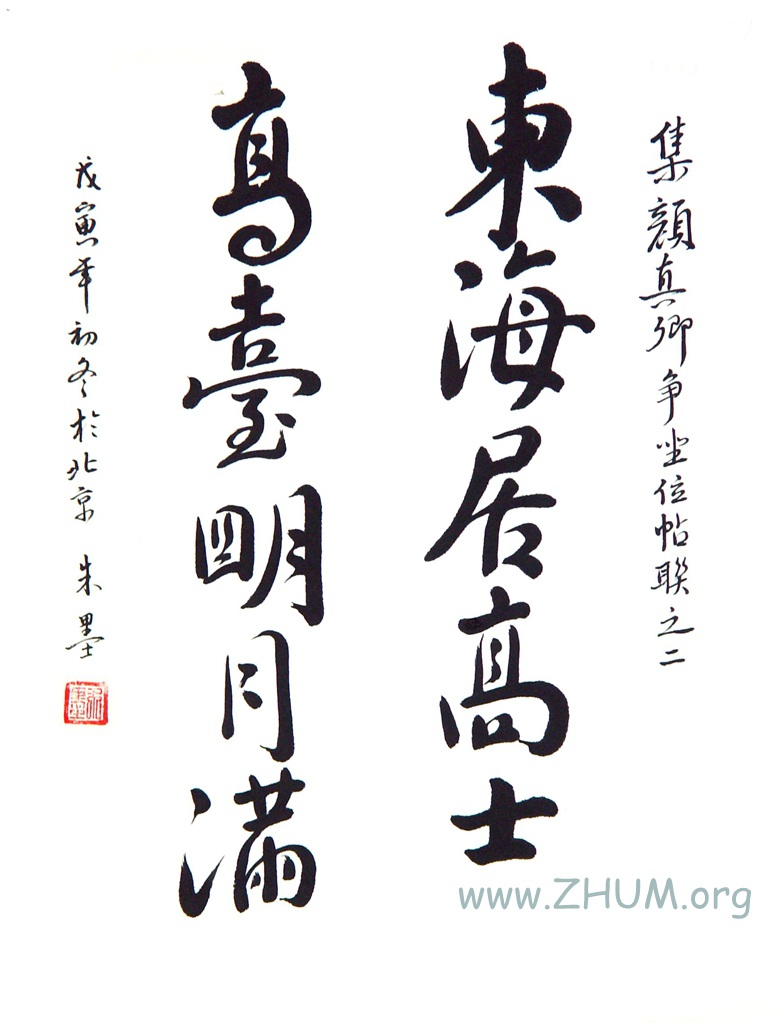 集顔真卿争坐位帖聯之二
東海居高士
高臺明月滿
戊寅年初冬於北京 朱墨
www.ZHUM.org